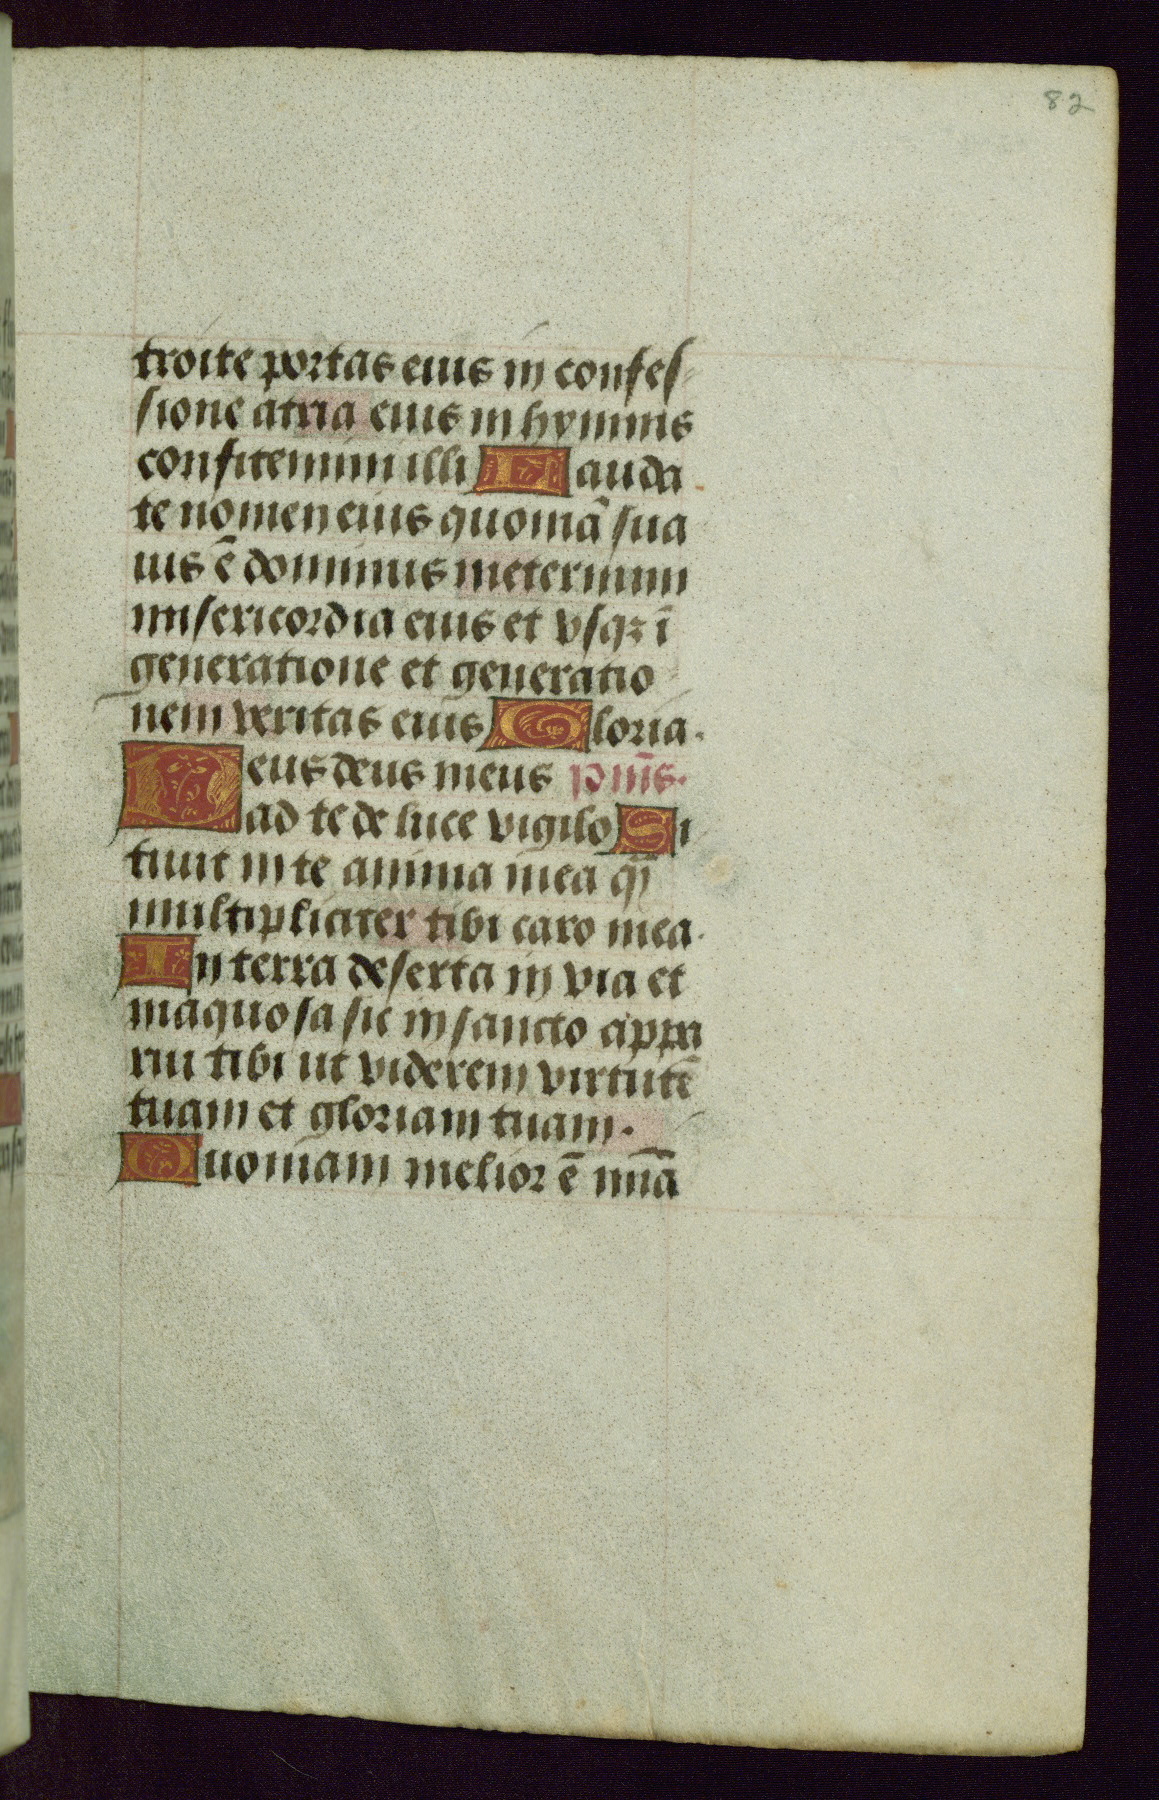 82
troite portas eius in confes-
sione atria eius in hymnis
confitemini illi Lauda
te nomen eius quoniā sua
uis ē dominus in eternum
misericordia eius et vsqꝫ ī
generatione et generatio
nem veritas eius Gloria.
Deus deus meus pm̄s.
ad te de luce vigilo Si
tiuit in te anima mea qͣ̄
multipliciter tibi caro mea.
In terra deserta in via et
inaquosa sic in sancto appa
rui tibi ut viderem virtutē
tuam et gloriam tuam.
Quoniam melior ē mīa